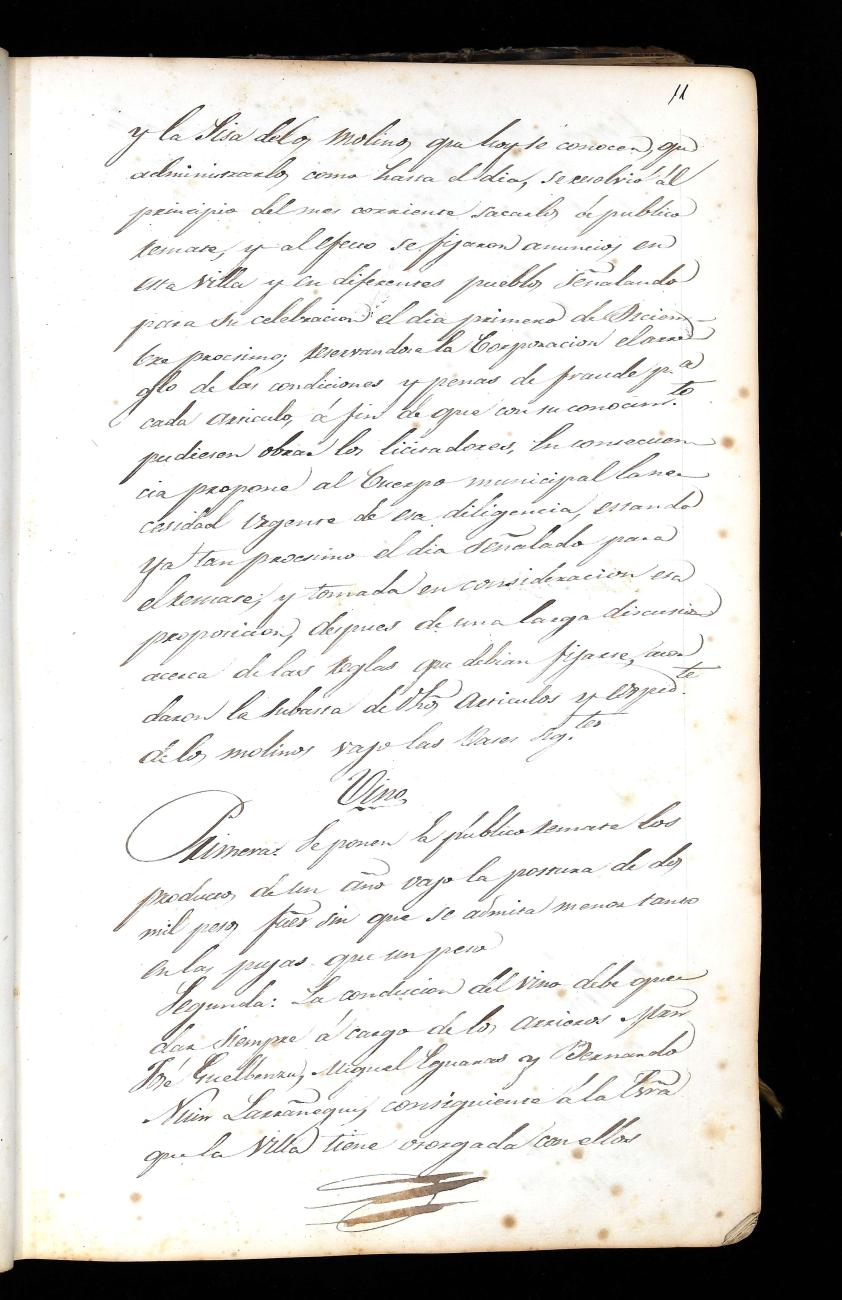 11
y la Sisa delos Molinos que hoy se conocen, que
administrarlos como hasta el dia, se resolvió al
principio del mes corriente sacarlos á publico
remate, y al efecto se fijaron anuncios en
esta Villa y en diferentes pueblos señalando
para su celebracion el dia primero de Diciem-
bre procsimo; reservandose la Corporacion el arre
glo de las condiciones y penas de fraude p.a
cada articulo, á fin de que con su conocim.to
pudiesen obrar los licitadores, En consecuen
cia propone al Cuerpo municipal la ne
cesidad urgente de esa diligencia, estando
ya tan procsimo el dia señalado para
el remate; y tomada en consideracion esa
proposicion, despues de una larga discusion
acerca de las reglas que debian fijarse, acor
daron la subasta de dhos articulos y
de los molinos vajo las Bases sig.tes
Vino
Primera: Se ponen á público remate los
productos de un año vajo la postura de dos
mil pesos fues sin que se admita menor tanto
en las pujas que un peso
Segunda: La conducion del vino debe que
dar siempre á cargo de los Arrieros
José Guelbenzu, Miguel Eguaras y Bernardo
Larrañegui, consiguiente á la Esrã
que la Villa tiene otorgada con ellos